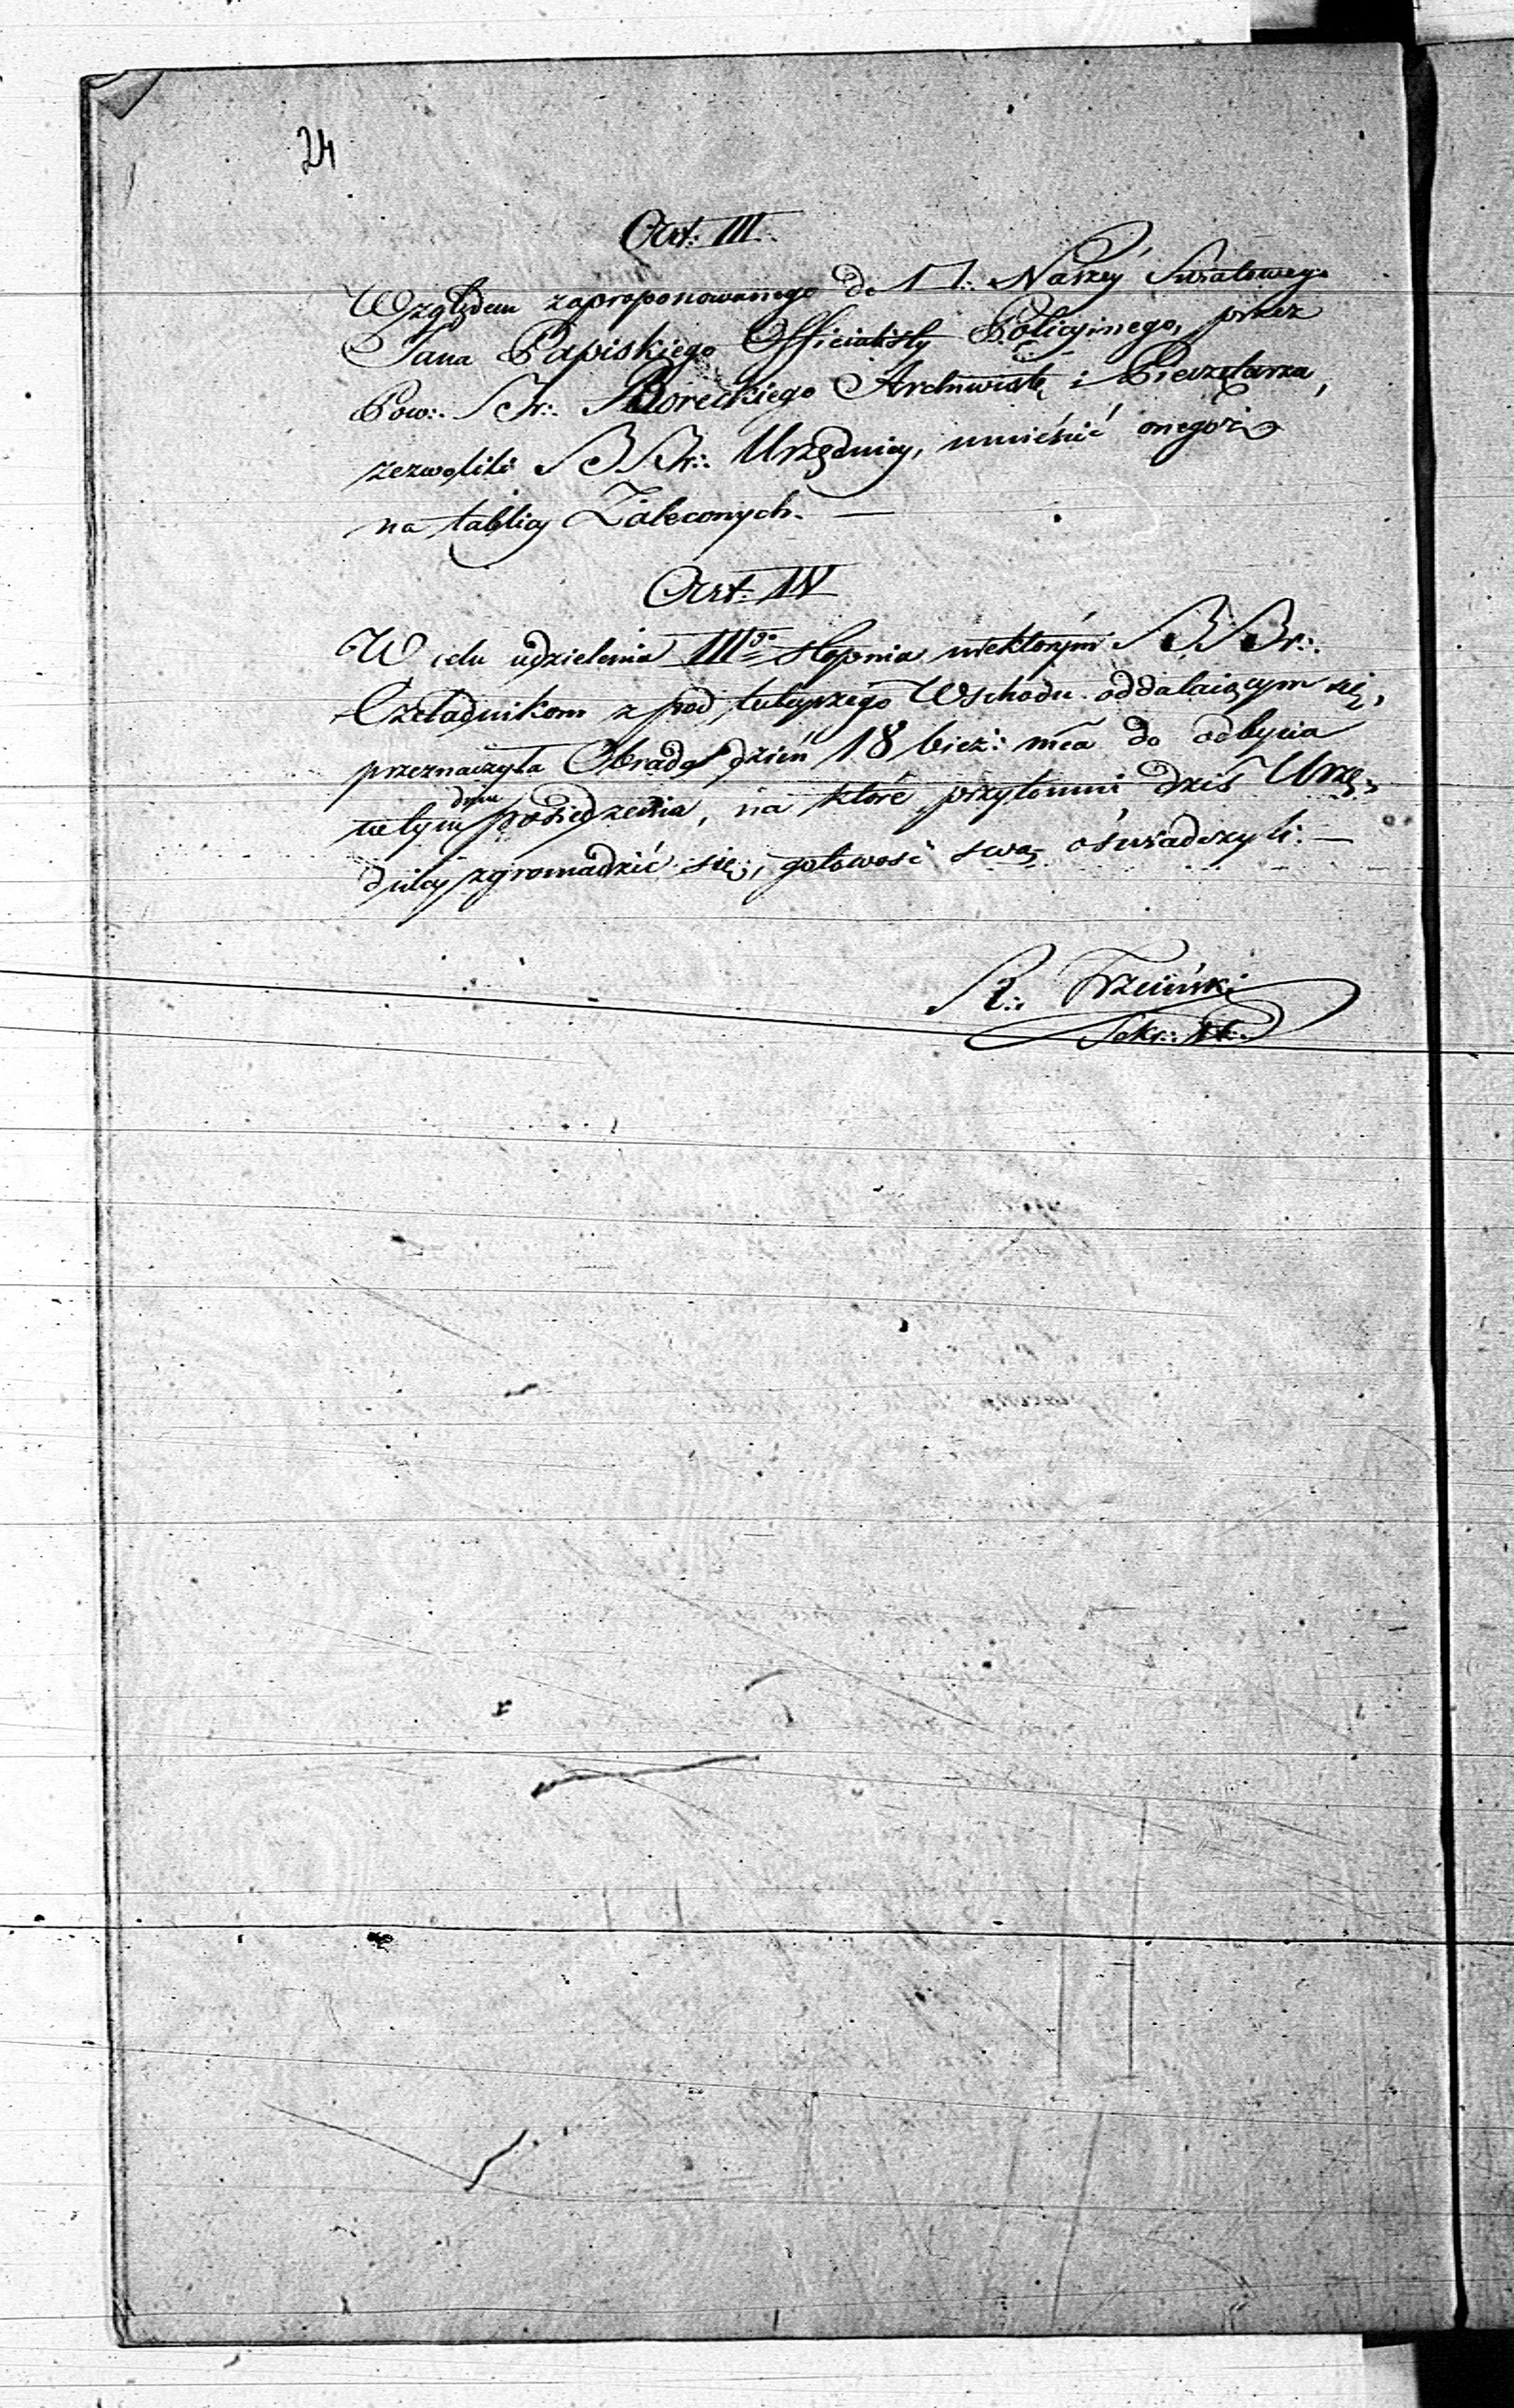 24
Art: III.
Względem zaproponowanego do □: Naszéy Swiatowego
Jana Papiskiego Officialisty Policyinego, przez
Pow:. Br:. Boreckiego Archiwistę i Pieczętarza,
zezwolili BBr:. Urzędnicy, umieśić onegoż
na tablicy Zaleconych. —
Art: IV
W celu udzielenia IIIgo stopnia niektórym BBr:.
Czeladnikom z pod tuteyszego Wschodu oddalaiącym się,
przeznaczyła Obrada dzień 18 bież: mca do odbycia
w tym posiedzenia, na które przytomni dziś Urzę-
dnicy zgromadzić się, gotowość swą oświadczyli. —
Sekr:.